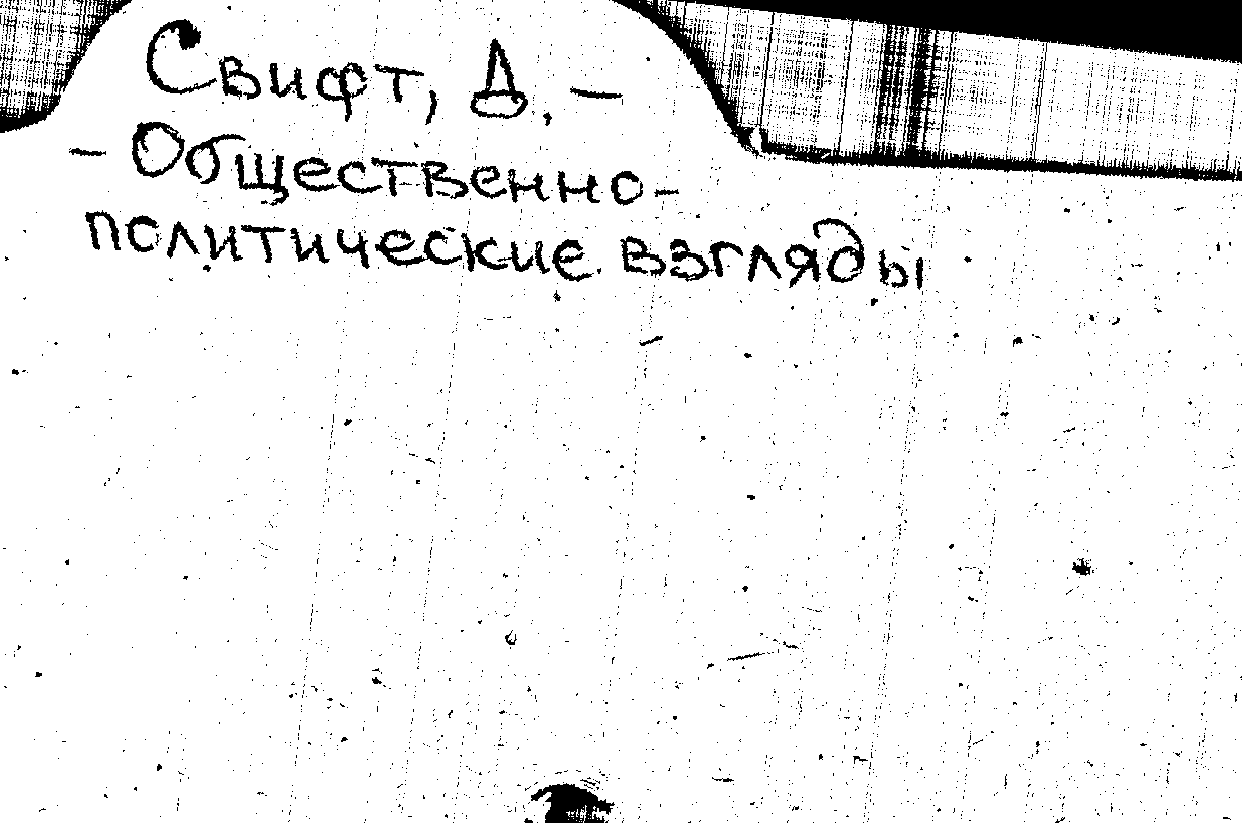 Свифт, Д. –
– Общественно-
политические взгляды